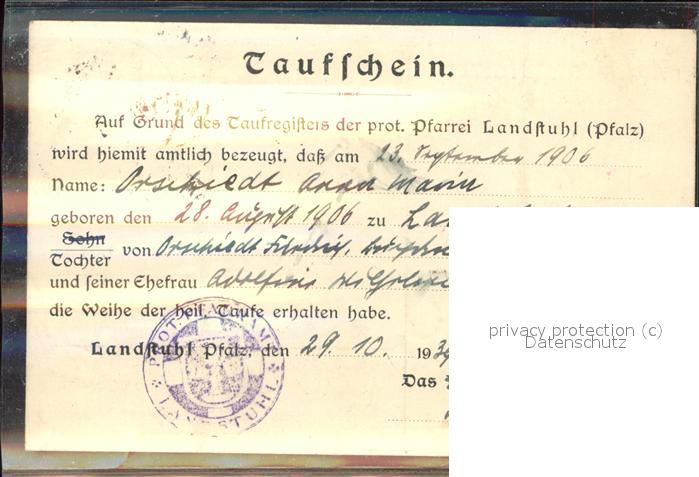 Taufschein.
Auf Grund des Taufregisters der prot. Pfarrei Landstuhl (Pfalz)
wird hiemit amtlich bezeugt, daß am 23. September 1906
Name: Orschiedt Anna Maria
geboren den 28. August 1906 zu La
Sohn
Tochter von Orschiedt
und seiner Ehefrau
die Weihe der heil. Taufe erhalten habe.
Landstuhl Pfalz, den 29. 10. 193
Das
PROT. PFARRAMT
LANDSTUHL
privacy protection (c)
Datenschutz